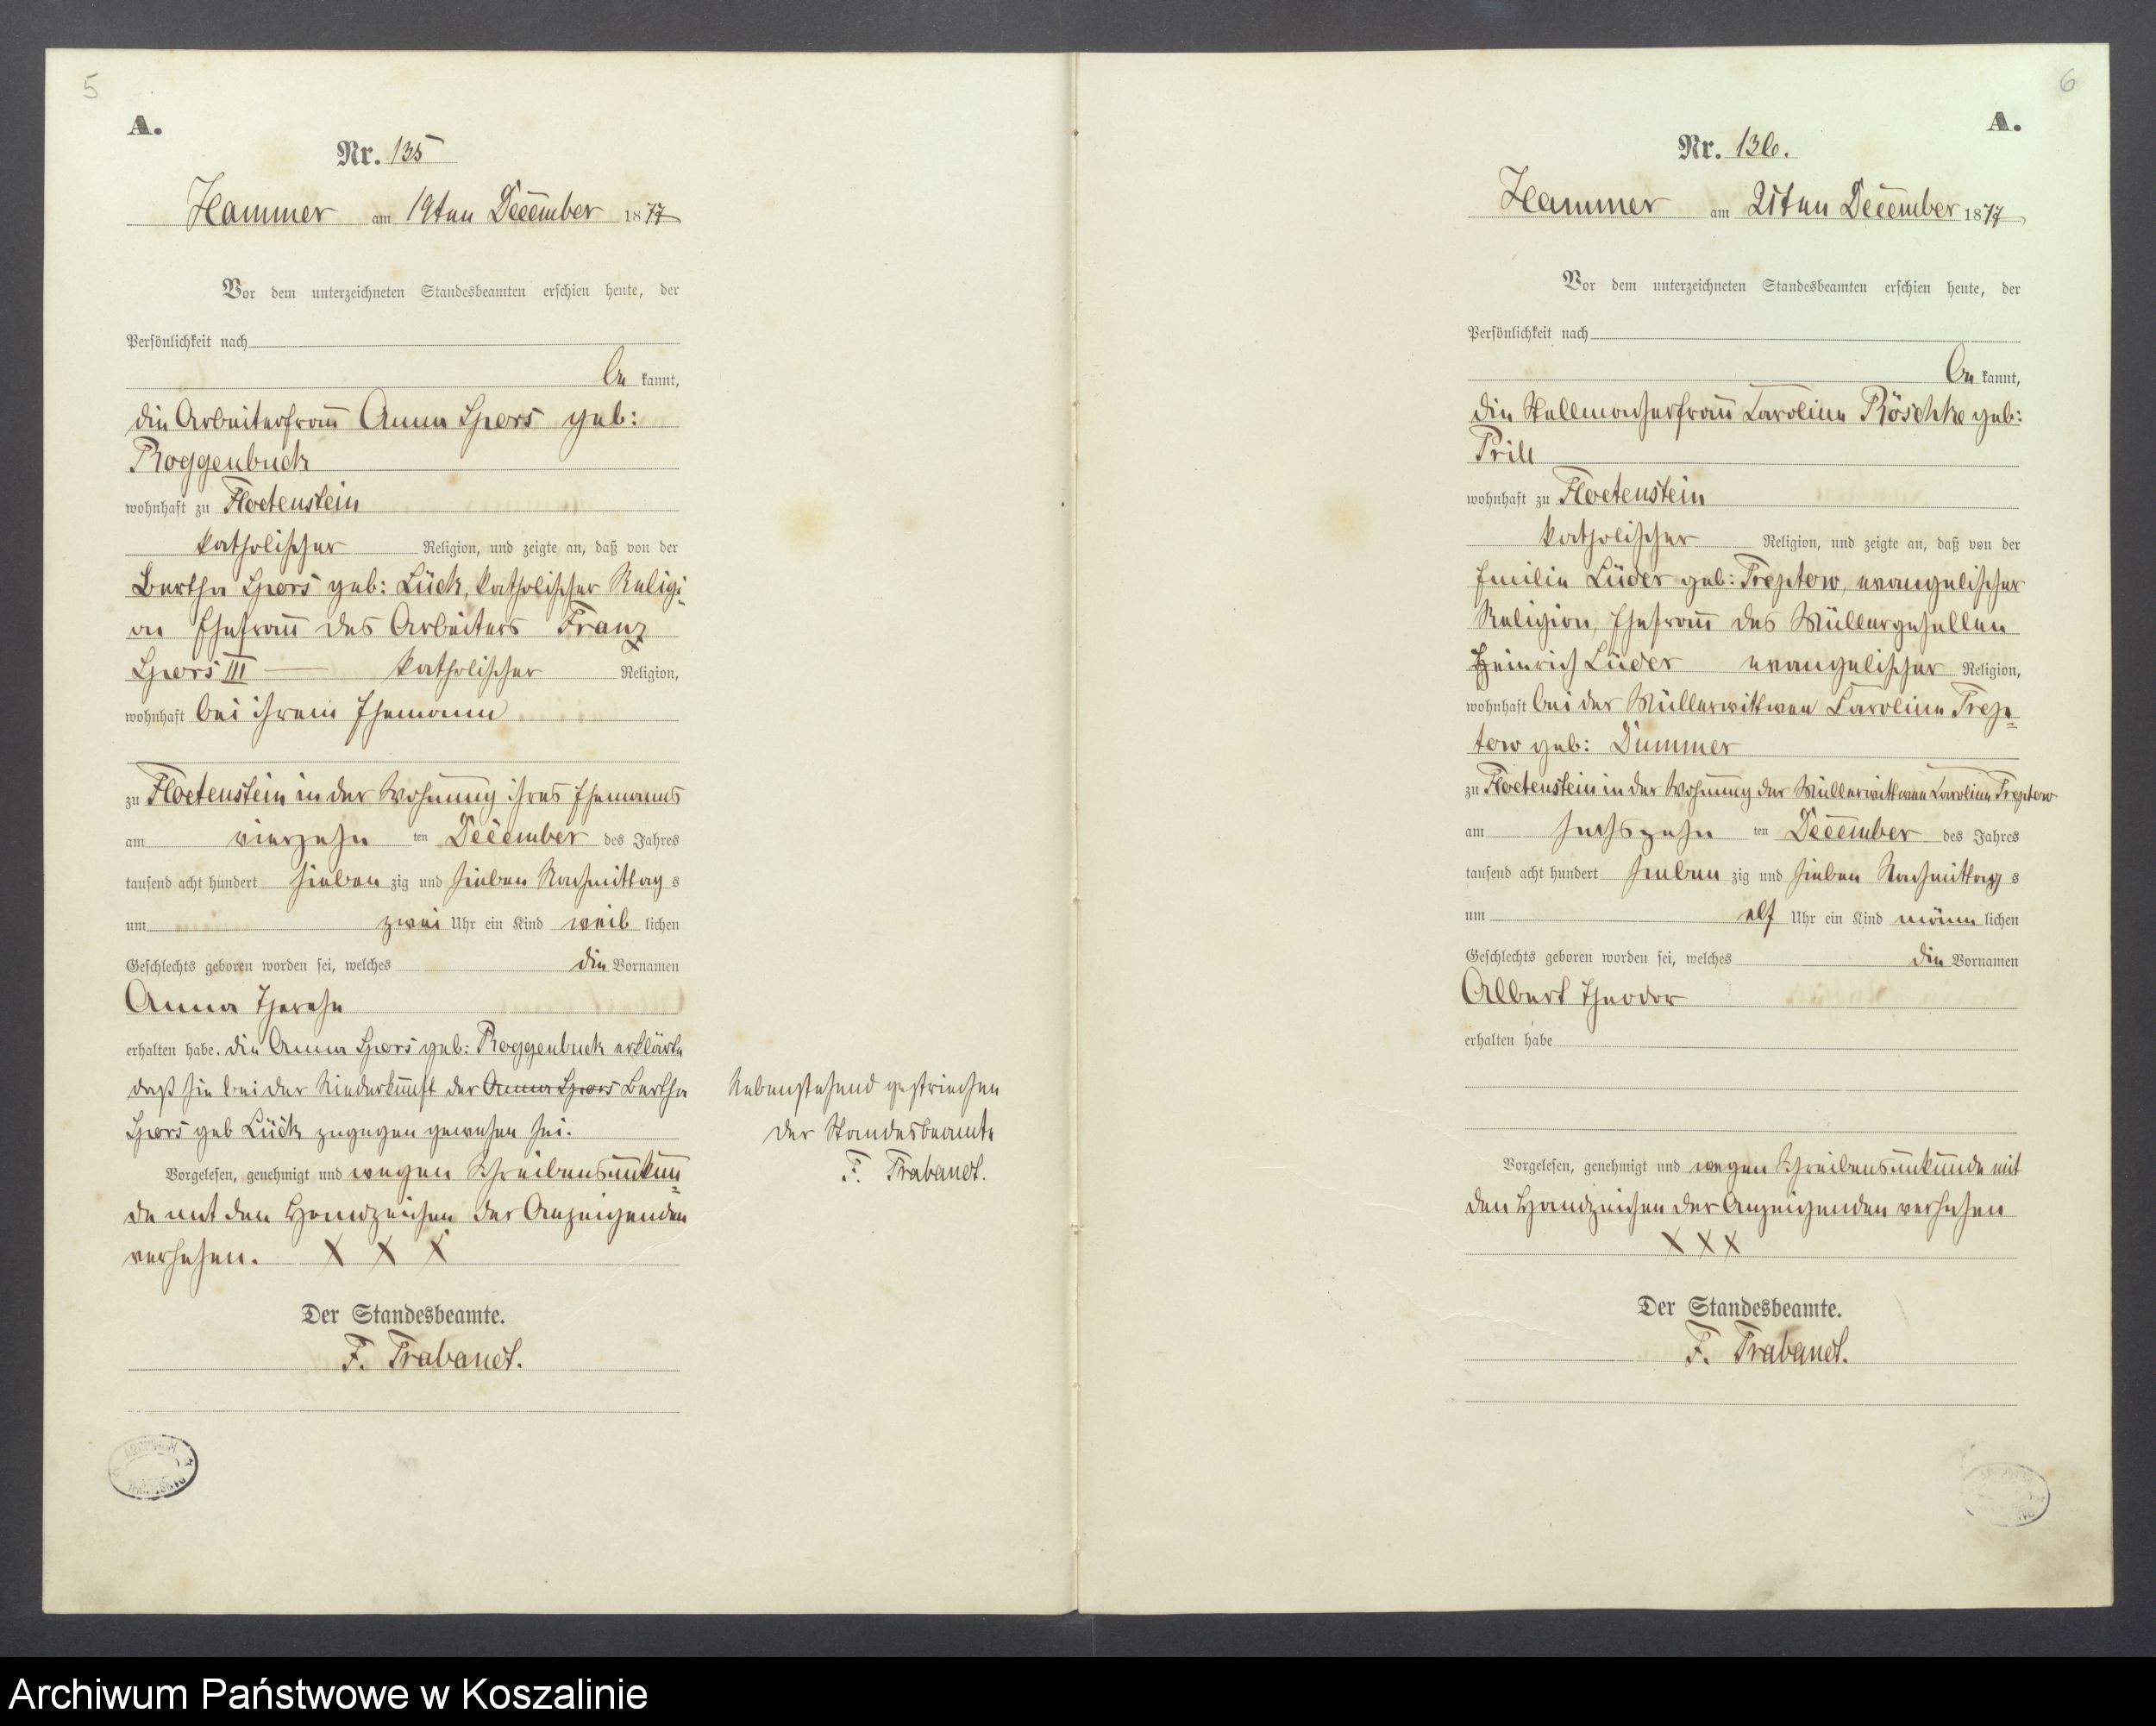 5
A.
Nr. 135
Hammer am 19ten December 1877
Vor dem unterzeichneten Standesbeamten erschien heute, der
Persönlichkeit nach
be kannt,
die Arbeiterfrau Anna Spors geb:
Roggenbuck
wohnhaft zu Floetenstein
katholischer Religion, und zeigte an, daß von der
Bertha Spors geb: Lück, katholischer Religi-
on Ehefrau des Arbeiters Franz
Spors III katholischer Religion,
wohnhaft bei ihrem Ehemann
zu Floetenstein in der Wohnung ihres Ehemanns
am vierzehn ten December des Jahres
tausend acht hundert sieben zig und sieben Nachmittag s
um zwei Uhr ein Kind weib lichen
Geschlechts geboren worden sei, welches die Vornamen
Anna Therese
erhalten habe. die Anna Spors geb: Roggenbuck erklärte
daß sie bei der Niederkunft der Anna Spors Bertha
Spors geb Lück zugegen gewesen sei.
Vorgelesen, genehmigt und wegen Schreibensunkun=
de mit den Handzeichen der Anzeigenden
versehen. X X X
Der Standesbeamte.
F. Trabandt.
Nebenstehend gestrichen
der Standesbeamte
F. Trabandt.
6
A.
Nr. 136.
Hammer am 21ten December 1877
Vor dem unterzeichneten Standesbeamten erschien heute, der
Persönlichkeit nach
be kannt,
die Stellmacherfrau Caroline Röschke geb:
Prill
wohnhaft zu Floetenstein
katholischer Religion, und zeigte an, daß von der
Emilie Lüder geb: Treptow, evangelischer
Religion, Ehefrau des Müllergesellen
Heinrich Lüder evangelischer Religion,
wohnhaft bei der Müllerwittwe Caroline Trep=
tow geb: Dummer
zu Floetenstein in der Wohnung der Müllerwittwe Caroline Treptow
am sechszehn ten December des Jahres
tausend acht hundert sieben zig und sieben Nachmittag s
um elf Uhr ein Kind männ lichen
Geschlechts geboren worden sei, welches die Vornamen
Albert Theodor
erhalten habe
Vorgelesen, genehmigt und wegen Schreibensunkunde mit
den Handzeichen der Anzeigenden versehen
X X X
Der Standesbeamte.
F. Trabandt.
Archiwum Państwowe w Koszalinie